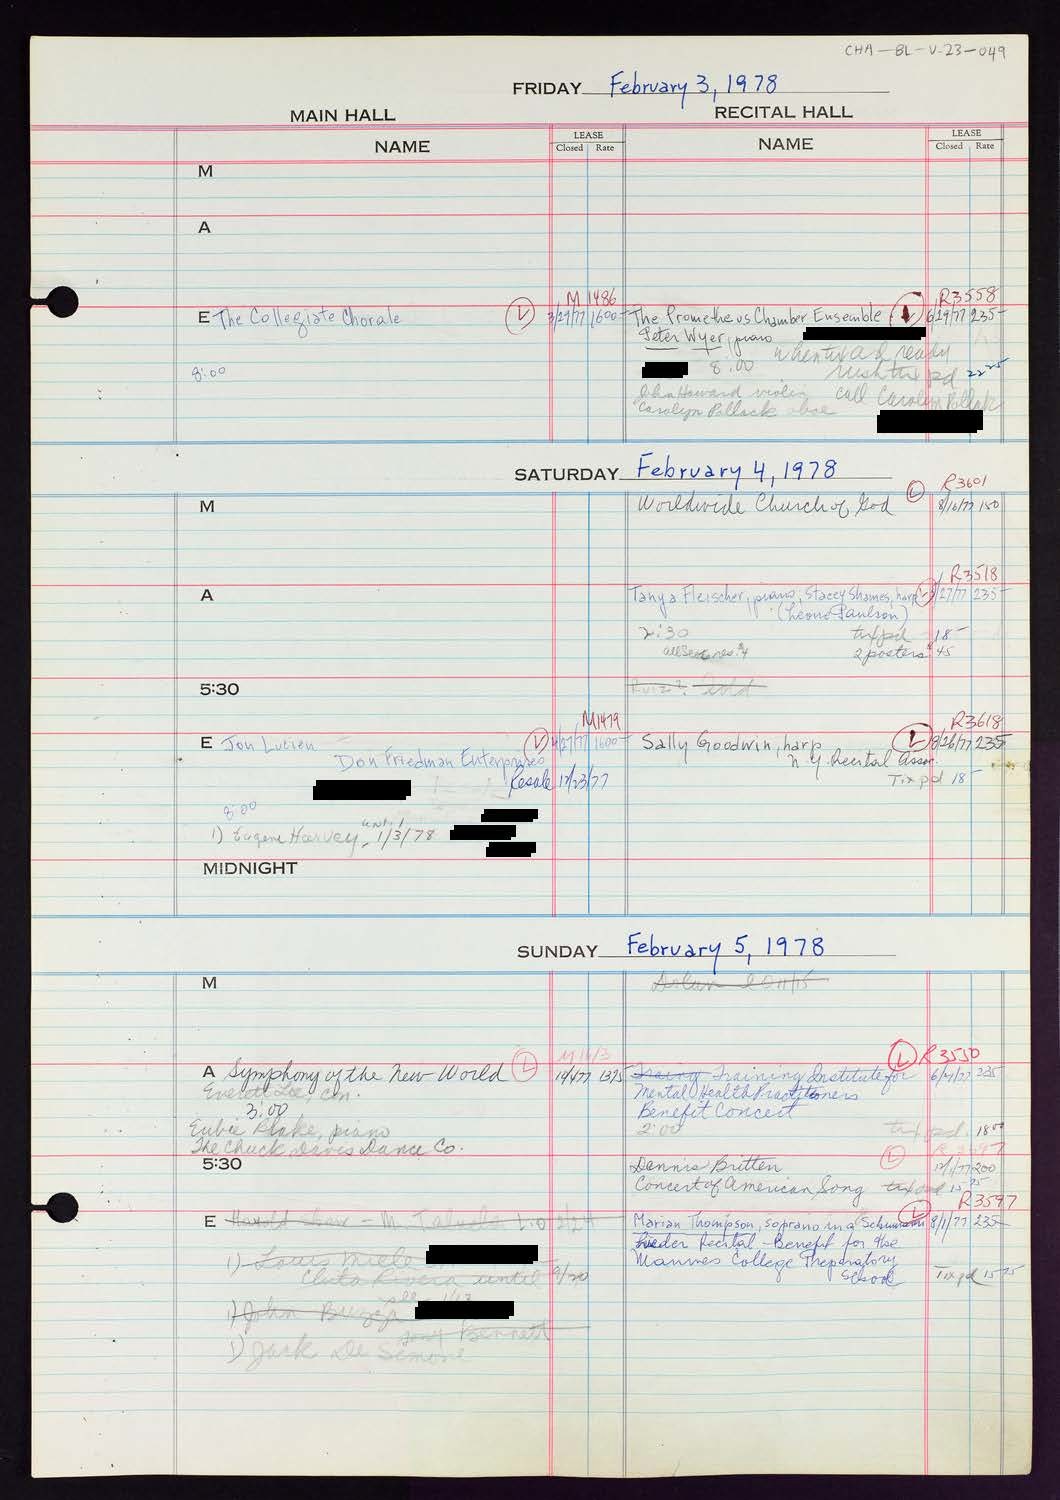 CHA-BL-V-23-049
FRIDAY February 3, 1978
MAIN HALL
RECITAL HALL
NAME
LEASE
Closed Rate
NAME
LEASE
Closed Rate
M
A
M 1486
R3558
E The Collegiate Chorale L 3/29/77 1600-
The Prometheus Chamber Ensemble 6/29/77 235-
Peter Wyer, piano
8:00
8:00
when ready
rush tix pd 22 25
Howard violin
call Carolyn Pollack
Carolyn Pollack oboe
SATURDAY February 4, 1978
R3601
M
Worldwide Church of God L 8/10/77 150
R3518
A
Tanya Fleischer, piano, Stacey Shames, harp /27/77 235-
(Leone Paulson)
2:30
tix pd 18-
all seats res. $4
2 posters $45
5:30
Ruiz?
M1479
R3618
E Jon Lucien L /27/77 1600-
Don Friedman Enterprises
Resale 12/23/77
Sally Goodwin, harp L 8/26/77 235-
N.Y. Recital Assoc.
Tix pd 18-
8:00
1) Eugene Harvey until 1/3/78
MIDNIGHT
SUNDAY February 5, 1978
M
L R3550
A Symphony of the New World L 1375
Everett Lee, con.
3:00
Eubie Blake, piano
The Chuck Davis Dance Co.
Training Institute for 6/7/77 235
Mental Health Practitioners
Benefit Concert
2:00
tix pd. 18
5:30
Dennis Britten L 12/1/77 200
Concert of American Song tix pd 15
R3597
E
Marian Thompson, soprano in a Schumann L 8/1/77 235-
Lieder Recital - Benefit for the
Mannes College Preparatory
School
Tix pd 15 75
1) Louis Miele
Chita Rivera until 9/20
1) John
Tony Bennett
1) Jack De Simone